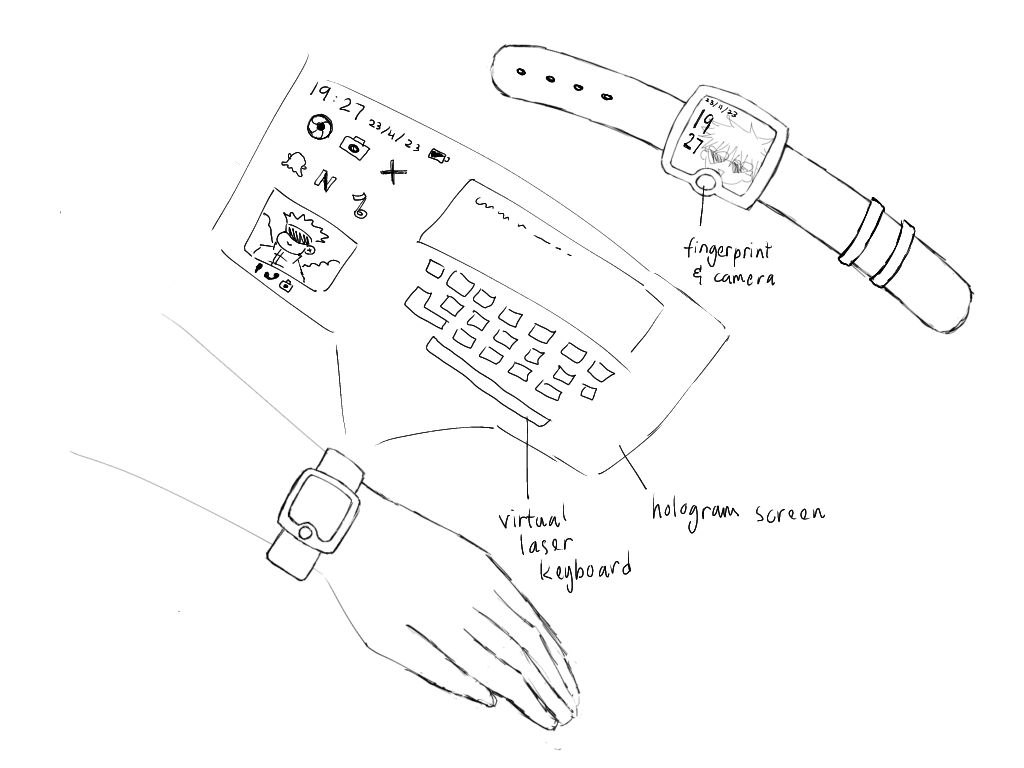 19:27
23/11/23
N
23/11/23
19
27
fingerprint
& camera
virtual
laser
keyboard
hologram screen